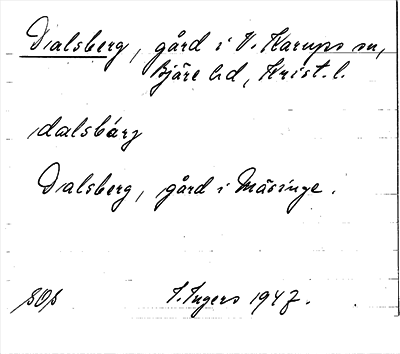 Dalsberg, gård i V. Karups sn,
Bjäre hd, Krist. l.
dalsbárj
Dalsberg, gård i Mäsinge.
I. Ingers 1947.